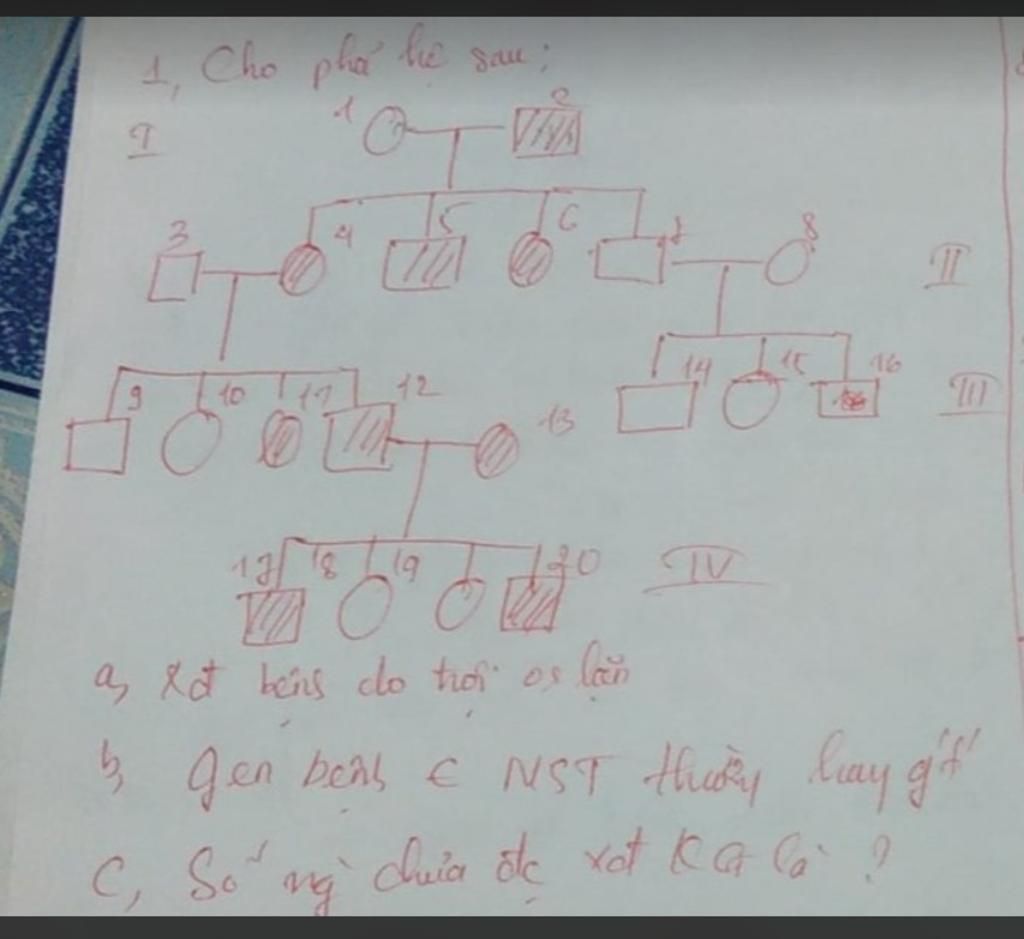 1, Cho phả hệ sau:
1 2
I
3 4 5 6 7 8
II
9 10 11 12 13 14 15 16
III
17 18 19 20
IV
a, Xđ bệnh do trội or lặn
b, Gen bệnh ∈ NST thường hay gt'
c, Số ng` chưa đc xđ KG là ?